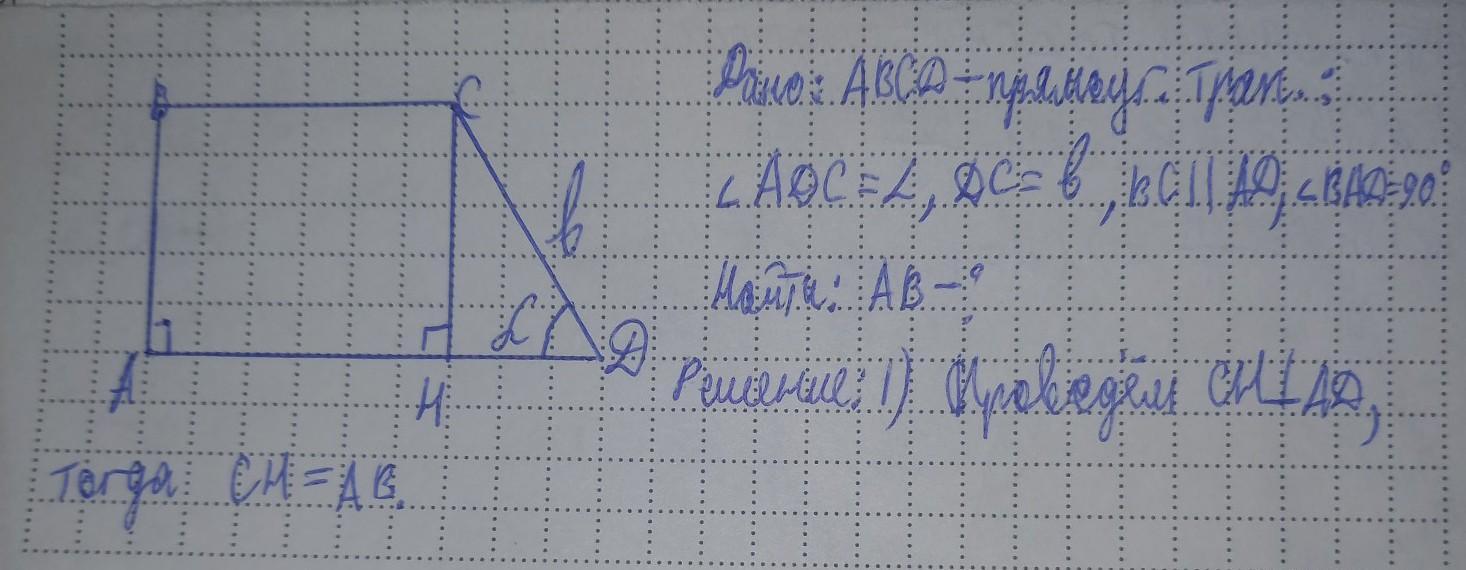 B C
Дано: ABCD - прямоуг. трап.:
∠ADC = α, DC = b, BC || AD, ∠BAD = 90°
b
Найти: AB - ?
α D
A H
Решение: 1) Проведём CH ⊥ AD,
тогда CH = AB.